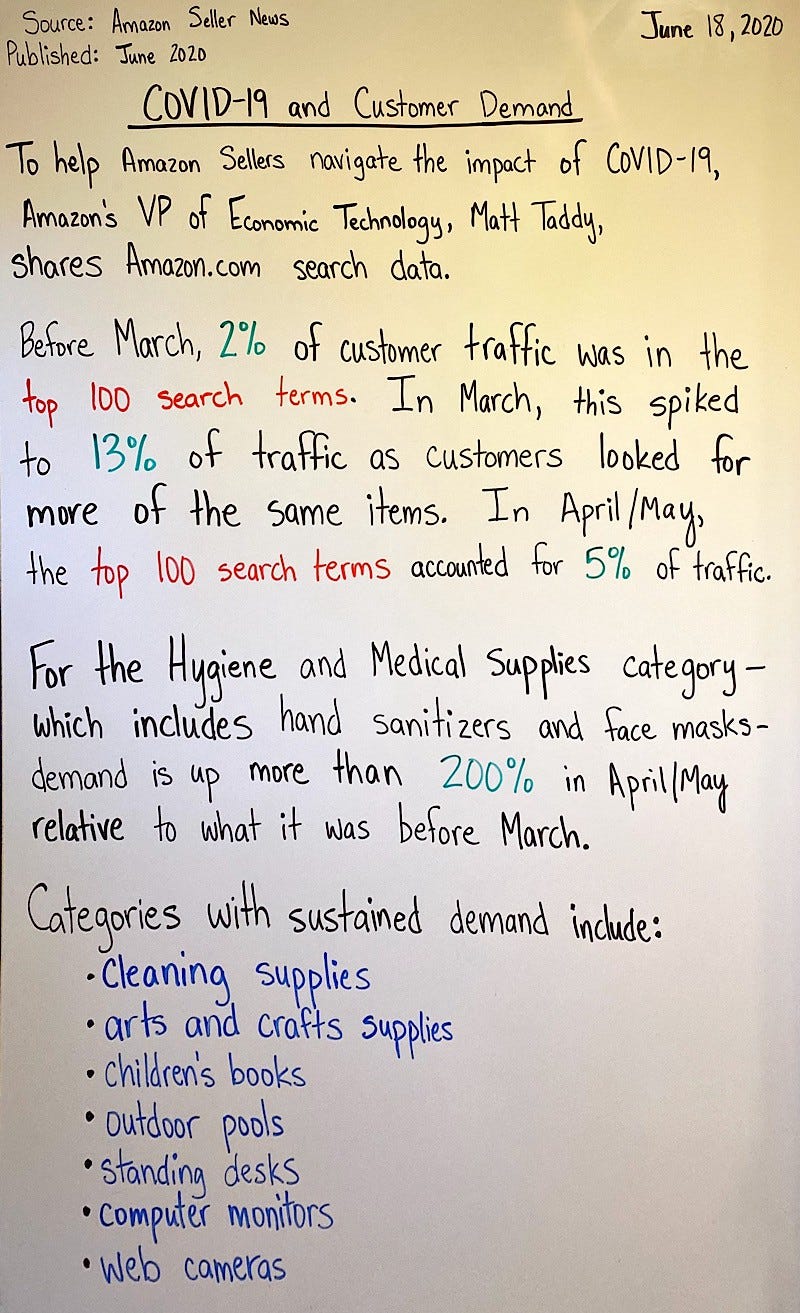 Source: Amazon Seller News
June 18, 2020
Published: June 2020
COVID-19 and Customer Demand
To help Amazon Sellers navigate the impact of COVID-19,
Amazon's VP of Economic Technology, Matt Taddy,
shares Amazon.com search data.
Before March, 2% of customer traffic was in the
top 100 search terms. In March, this spiked
to 13% of traffic as customers looked for
more of the same items. In April/May,
the top 100 search terms accounted for 5% of traffic.
For the Hygiene and Medical Supplies category-
which includes hand sanitizers and face masks-
demand is up more than 200% in April/May
relative to what it was before March.
Categories with sustained demand include:
• Cleaning supplies
• arts and crafts supplies
• children's books
• outdoor pools
• standing desks
• computer monitors
• web cameras